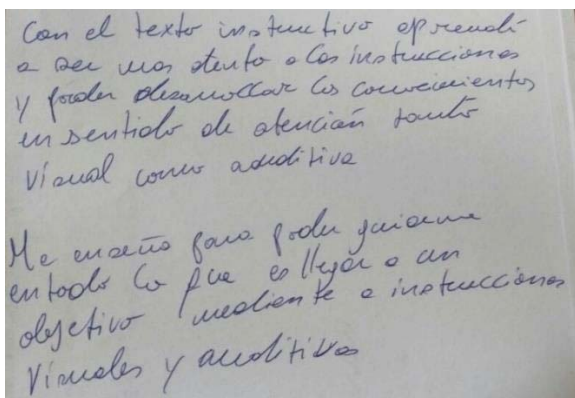 Con el texto instructivo aprendí
a ser mas atento a las instrucciones
y poder desarrollar los conocimientos
en sentido de atención tanto
visual como auditiva
Me enseño para poder guiarme
en todo lo que es llegar a un
objetivo mediante a instrucciones
visuales y auditivas